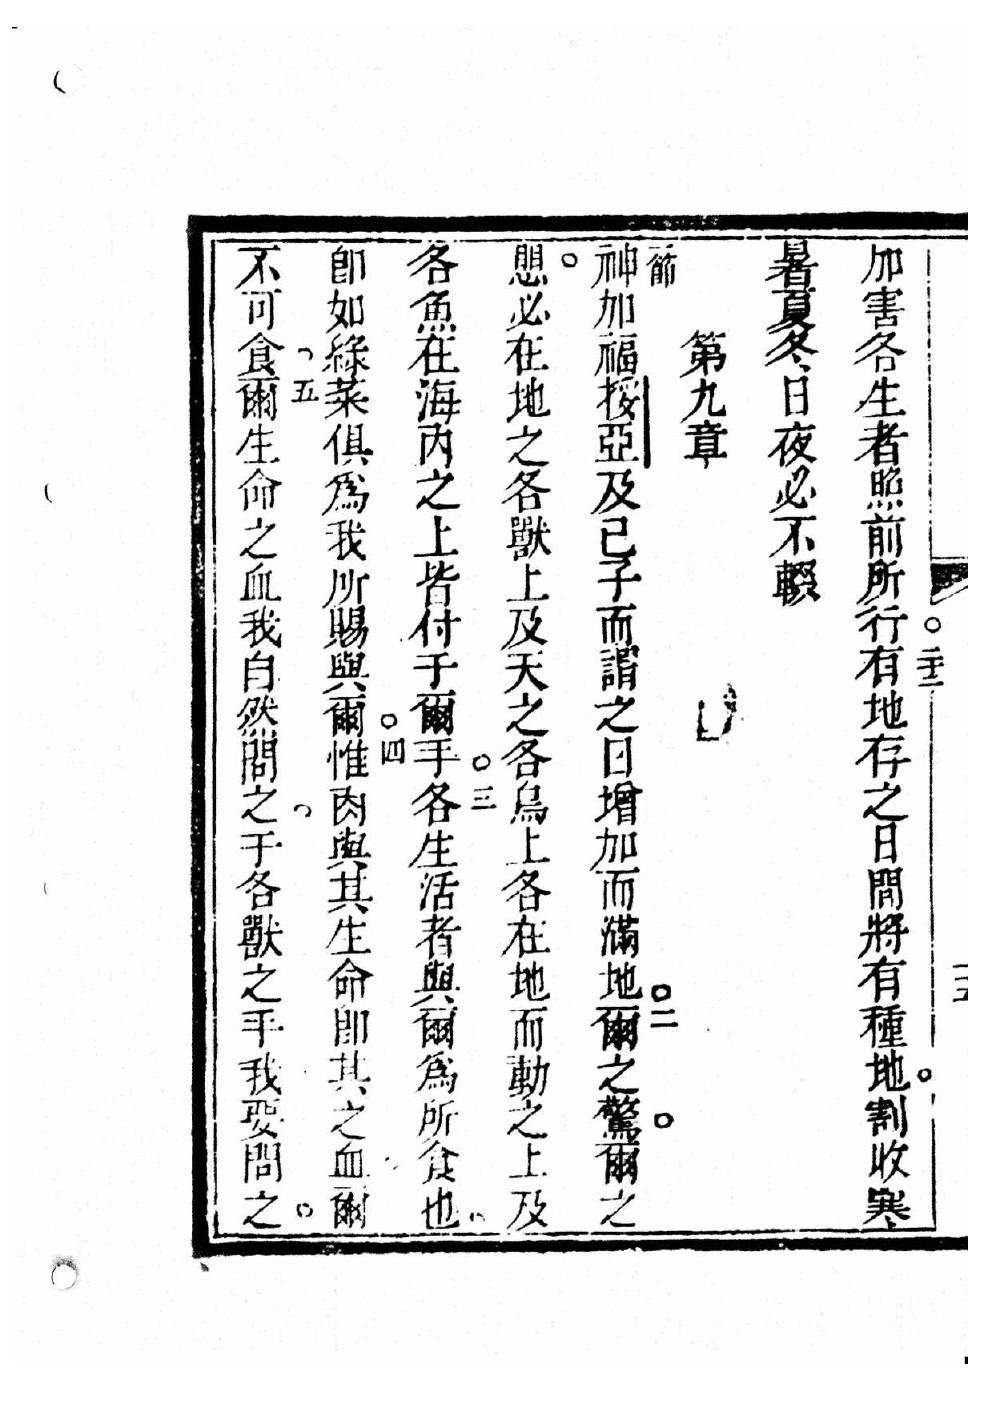 加害各生者照前所行。二十二有地存之日間將有種地。割收寒
暑夏冬日夜必不輟
第九章
節神加福挼亞及已子而謂之曰增加而滿地。二爾之驚。爾之
愳。必在地之各獸上及天之各鳥上各在地而動之上及
各魚在海內之上皆付于爾手。三各生活者與爾爲所食也
卽如綠菜俱爲我所賜與爾。四惟肉與其生命卽其之血爾
不可食、五爾生命之血我自然問之、于各獸之手我要問之。